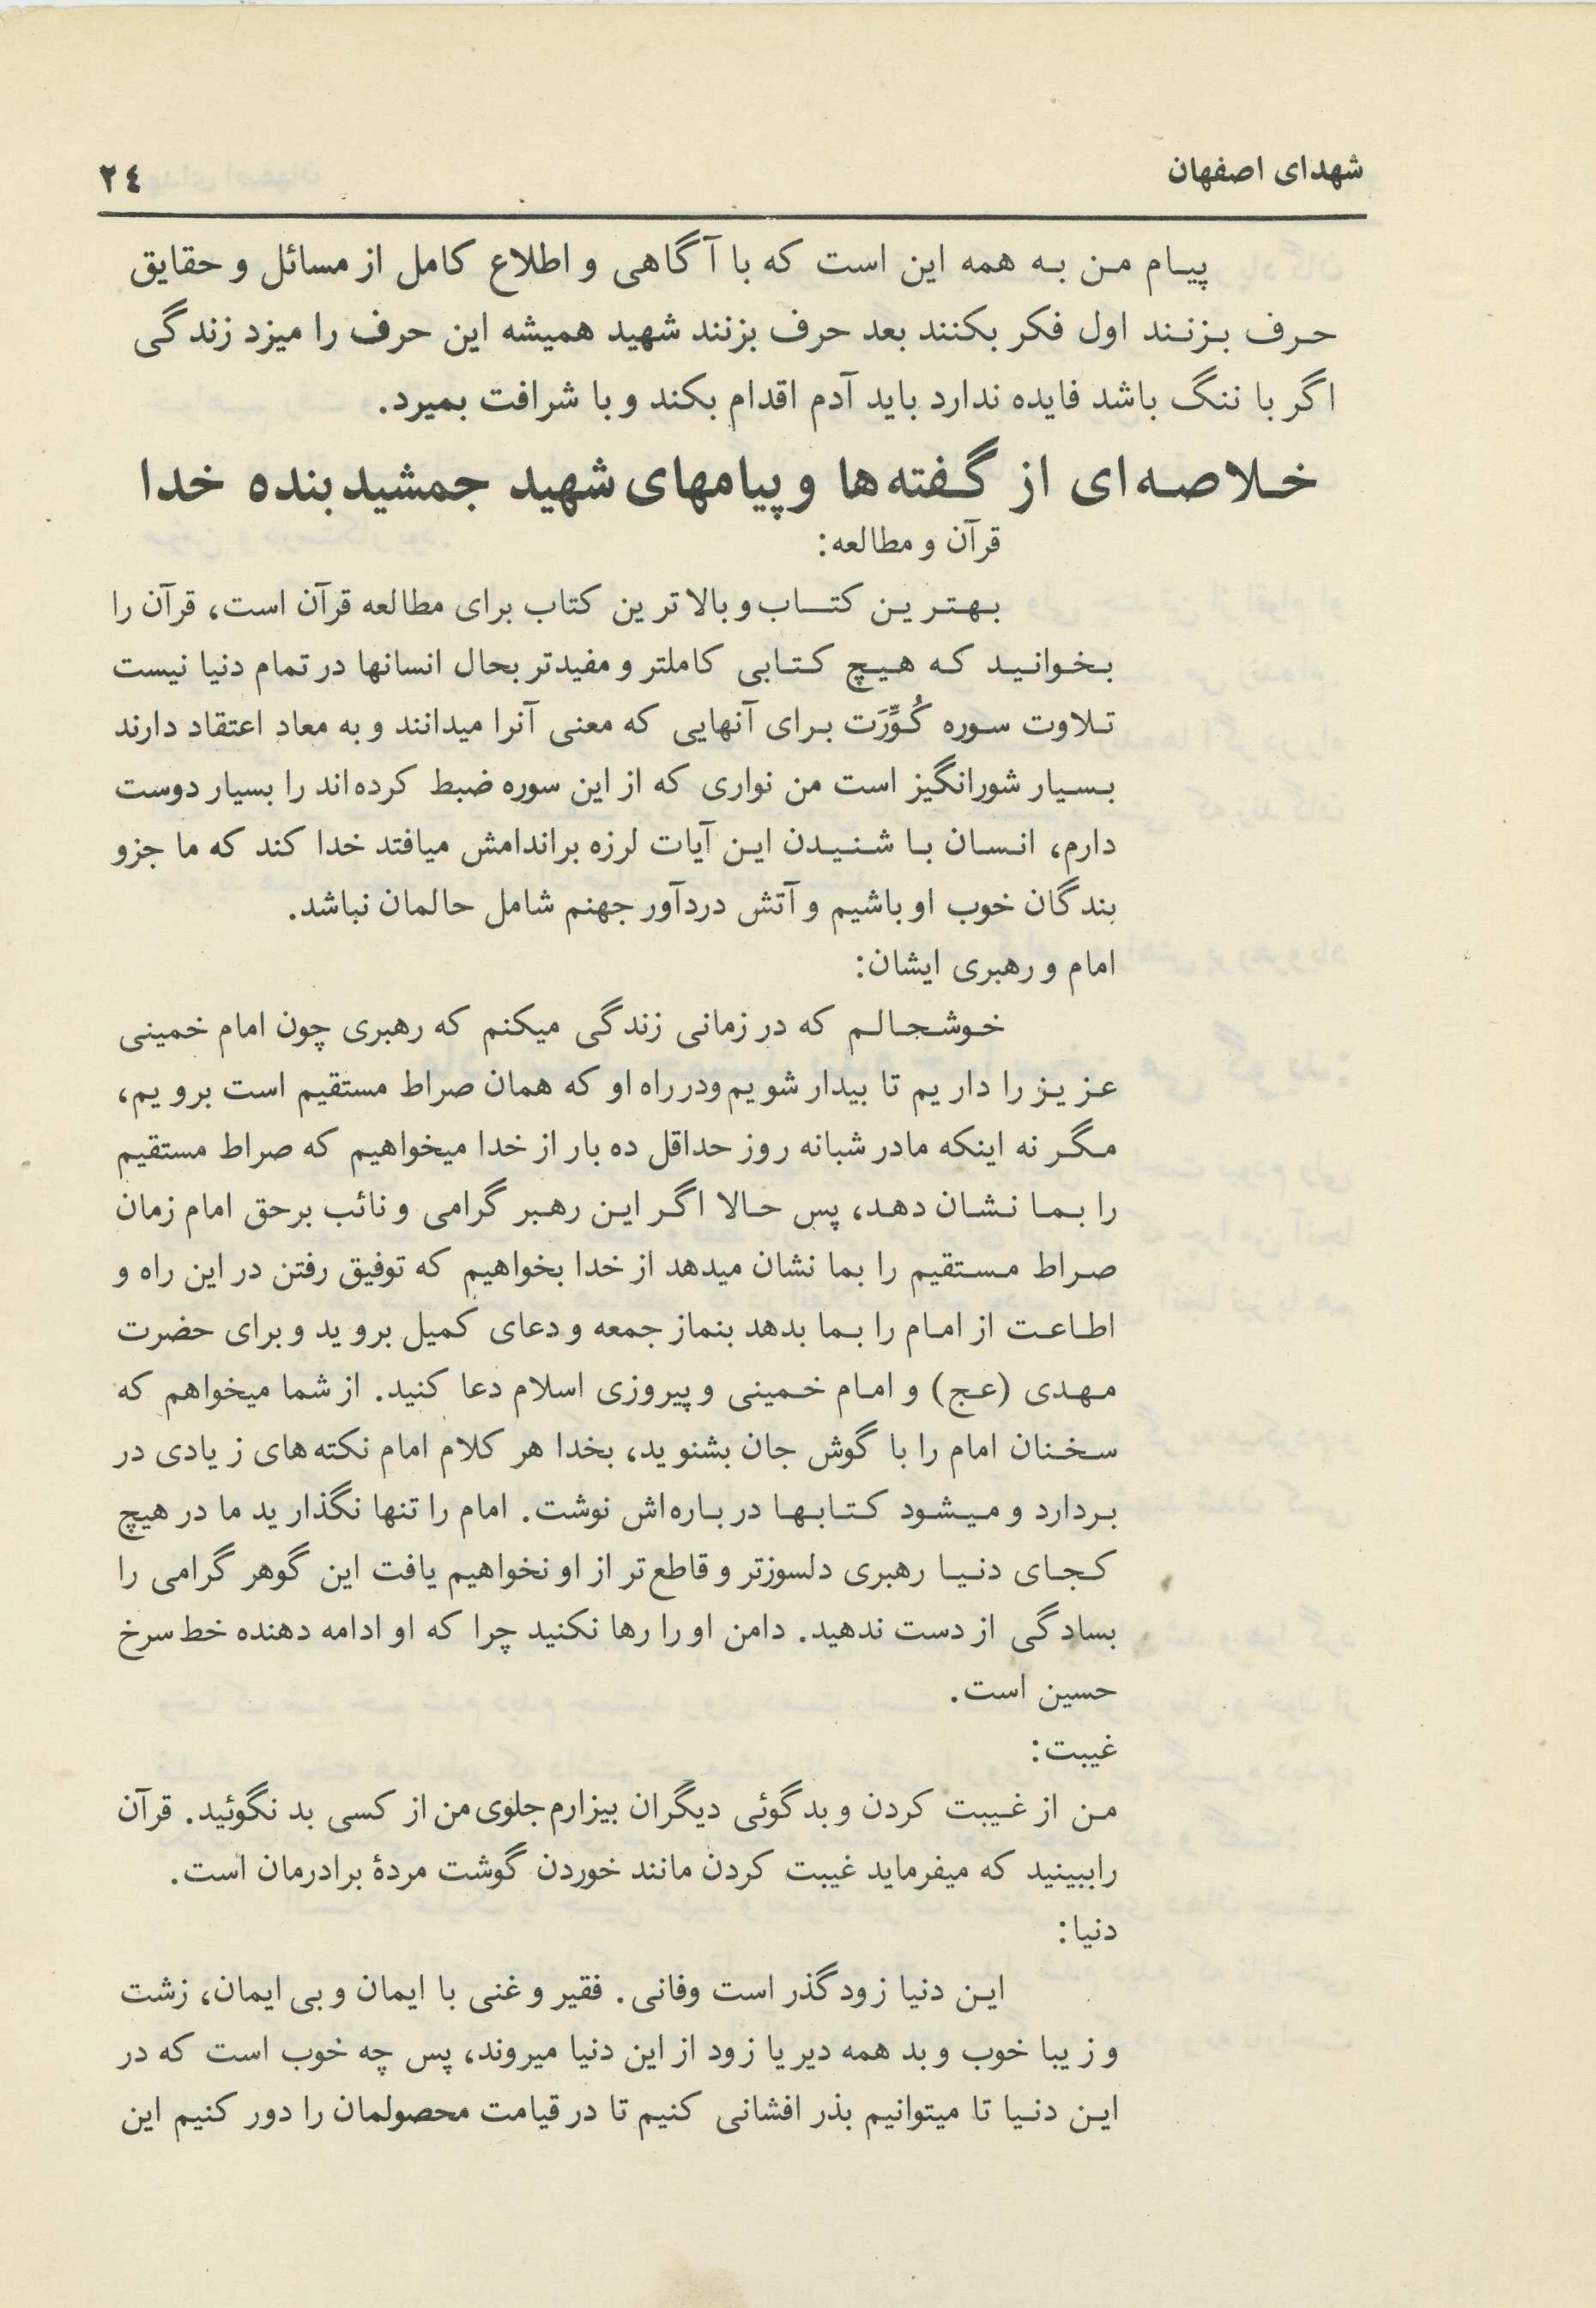 شهدای اصفهان ٢٤
پیام من به همه این است که با آگاهی و اطلاع کامل از مسائل و حقایق
حرف بزنند اول فکر بکنند بعد حرف بزنند شهید همیشه این حرف را میزد زندگی
اگر با ننگ باشد فایده ندارد باید آدم اقدام بکند و با شرافت بمیرد.
خلاصه‌ای از گفته‌ها و پیامهای شهید جمشید بنده خدا
قرآن و مطالعه:
بهترین کتاب و بالاترین کتاب برای مطالعه قرآن است، قرآن را
بخوانید که هیچ کتابی کاملتر و مفیدتر بحال انسانها در تمام دنیا نیست
تلاوت سوره کُوِّرَت برای آنهایی که معنی آنرا میدانند و به معاد اعتقاد دارند
بسیار شورانگیز است من نواری که از این سوره ضبط کرده‌اند را بسیار دوست
دارم، انسان با شنیدن این آیات لرزه براندامش میافتد خدا کند که ما جزو
بندگان خوب او باشیم و آتش دردآور جهنم شامل حالمان نباشد.
امام و رهبری ایشان:
خوشجالم که در زمانی زندگی میکنم که رهبری چون امام خمینی
عزیز را داریم تا بیدار شویم ودر راه او که همان صراط مستقیم است برویم،
مگر نه اینکه مادر شبانه روز حداقل ده بار از خدا میخواهیم که صراط مستقیم
را بما نشان دهد، پس حالا اگر این رهبر گرامی و نائب برحق امام زمان
صراط مستقیم را بما نشان میدهد از خدا بخواهیم که توفیق رفتن در این راه و
اطاعت از امام را بما بدهد بنماز جمعه و دعای کمیل بروید و برای حضرت
مهدی (عج) و امام خمینی و پیروزی اسلام دعا کنید. از شما میخواهم که
سخنان امام را با گوش جان بشنوید، بخدا هر کلام امام نکته‌های زیادی در
بردارد و میشود کتابها درباره‌اش نوشت. امام را تنها نگذارید ما در هیچ
کجای دنیا رهبری دلسوزتر و قاطع‌تر از او نخواهیم یافت این گوهر گرامی را
بسادگی از دست ندهید. دامن او را رها نکنید چرا که او ادامه دهنده خط سرخ
حسین است.
غیبت:
من از غیبت کردن و بدگوئی دیگران بیزارم جلوی من از کسی بد نگوئید. قرآن
راببینید که میفرماید غیبت کردن مانند خوردن گوشت مردهٔ برادرمان است.
دنیا:
این دنیا زودگذر است وفانی. فقیر و غنی با ایمان و بی ایمان، زشت
و زیبا خوب و بد همه دیر یا زود از این دنیا میروند، پس چه خوب است که در
این دنیا تا میتوانیم بذر افشانی کنیم تا در قیامت محصولمان را دور کنیم این